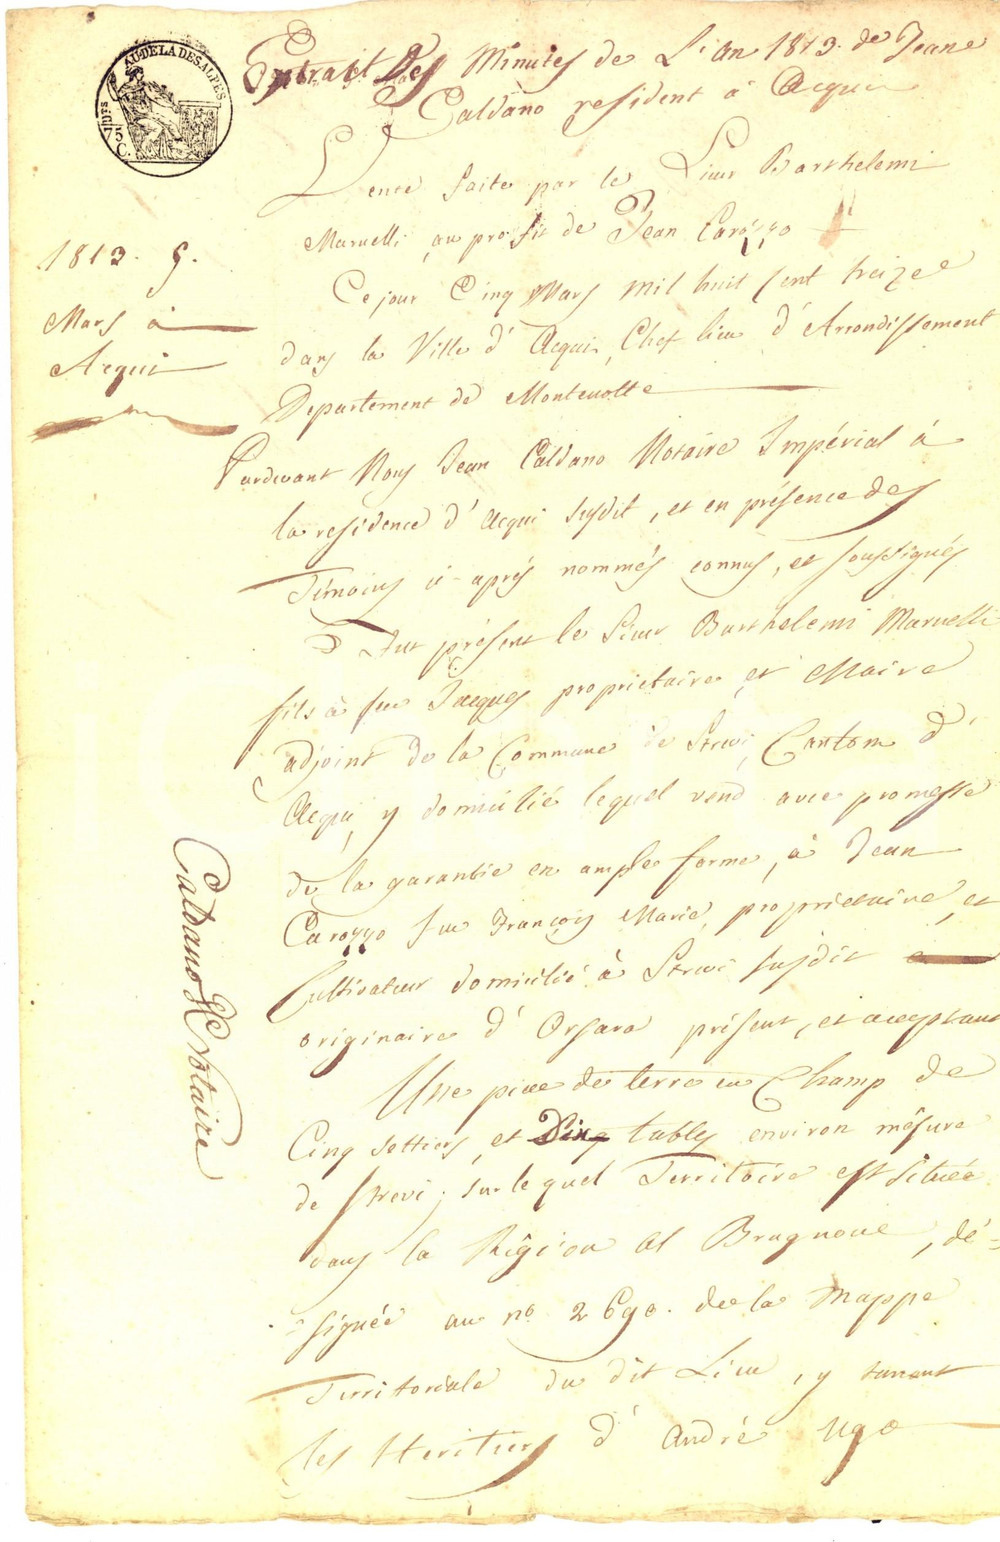 AU DELA DES ALPES
75 C.
Extrait Des Minutes de L'an 1813. de Jean
Caldano resident à Acqui
Vente faite par le Sieur Barthelemi
Maruelli au profit de Jean Carozzo
1813. 5.
Mars à
Acqui
Ce jour Cinq Mars mil huit cent treize
dans la Ville d'Acqui, Chef lieu d'Arrondissement
Departement de Montenotte
Pardevant Nous Jean Caldano Notaire Impérial à
la residence d'Acqui susdit, et en présence des
Témoins ci-aprés nommés connus, et soussignés
Fut présent le Sieur Barthelemi Maruelli
fils à feu Jacques proprietaire, et Maire
adjoint de la Commune de Strevi, Cantom d'
Acqui, y domicilié lequel vend avec promesse
de la garantie en ample forme, à Jean
Carozzo feu François Marie, proprietaire, et
Cultivateur domicilié à Strevi susdit
originaire d'Orsara présent, et acceptant
Une piece de terre en Champ de
Cinq settiers, et Dix tables environ mésure
de Strevi, sur le quel Territoire est située
dans la Région al Brugnone, dé=
=signée au n.o 2690. de la Mappe
Territoriale du dit Lieu, y tenant
les Heritiers d'André Ugo
Caldano Notaire